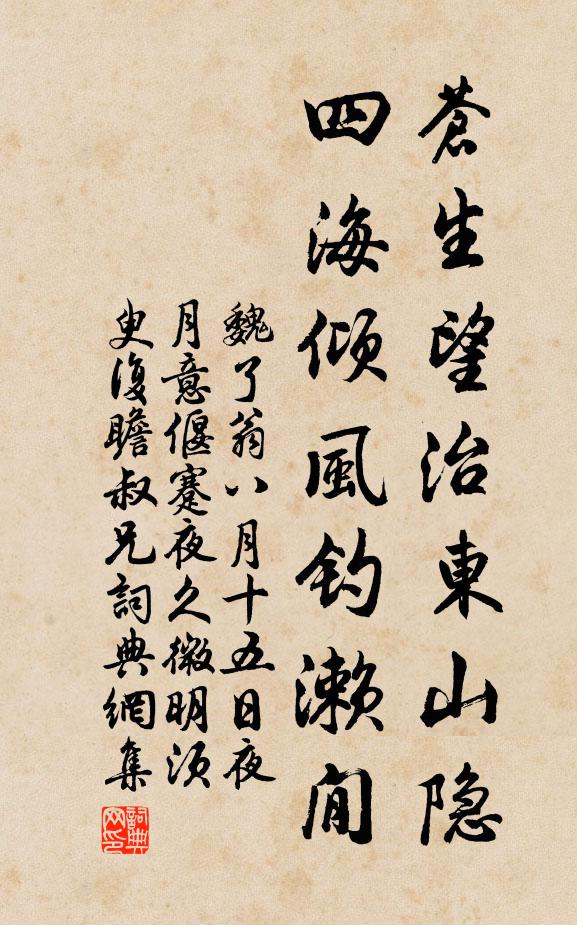 蒼生望治東山隐
四海傾風釣瀨間
魏了翁八月十五日夜
月意偃蹇夜久微明須
臾復瞻叔兄詞典網集
詞典網印